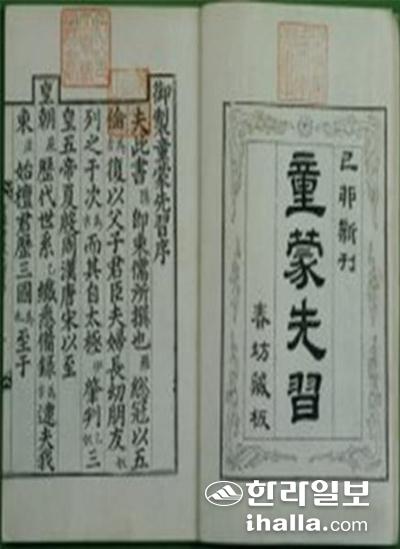 己卯新刊
童蒙先習
春坊藏板
御製童蒙先習序
夫此書卽東儒所撰也總冠以五
倫復以父子君臣夫婦長幼朋友
列之于次而其自太極肇判三
皇五帝夏殷周漢唐宋以至
皇朝歷代世系纖悉備錄逮夫我
東始檀君歷三國至于
한라일보
ihalla.com